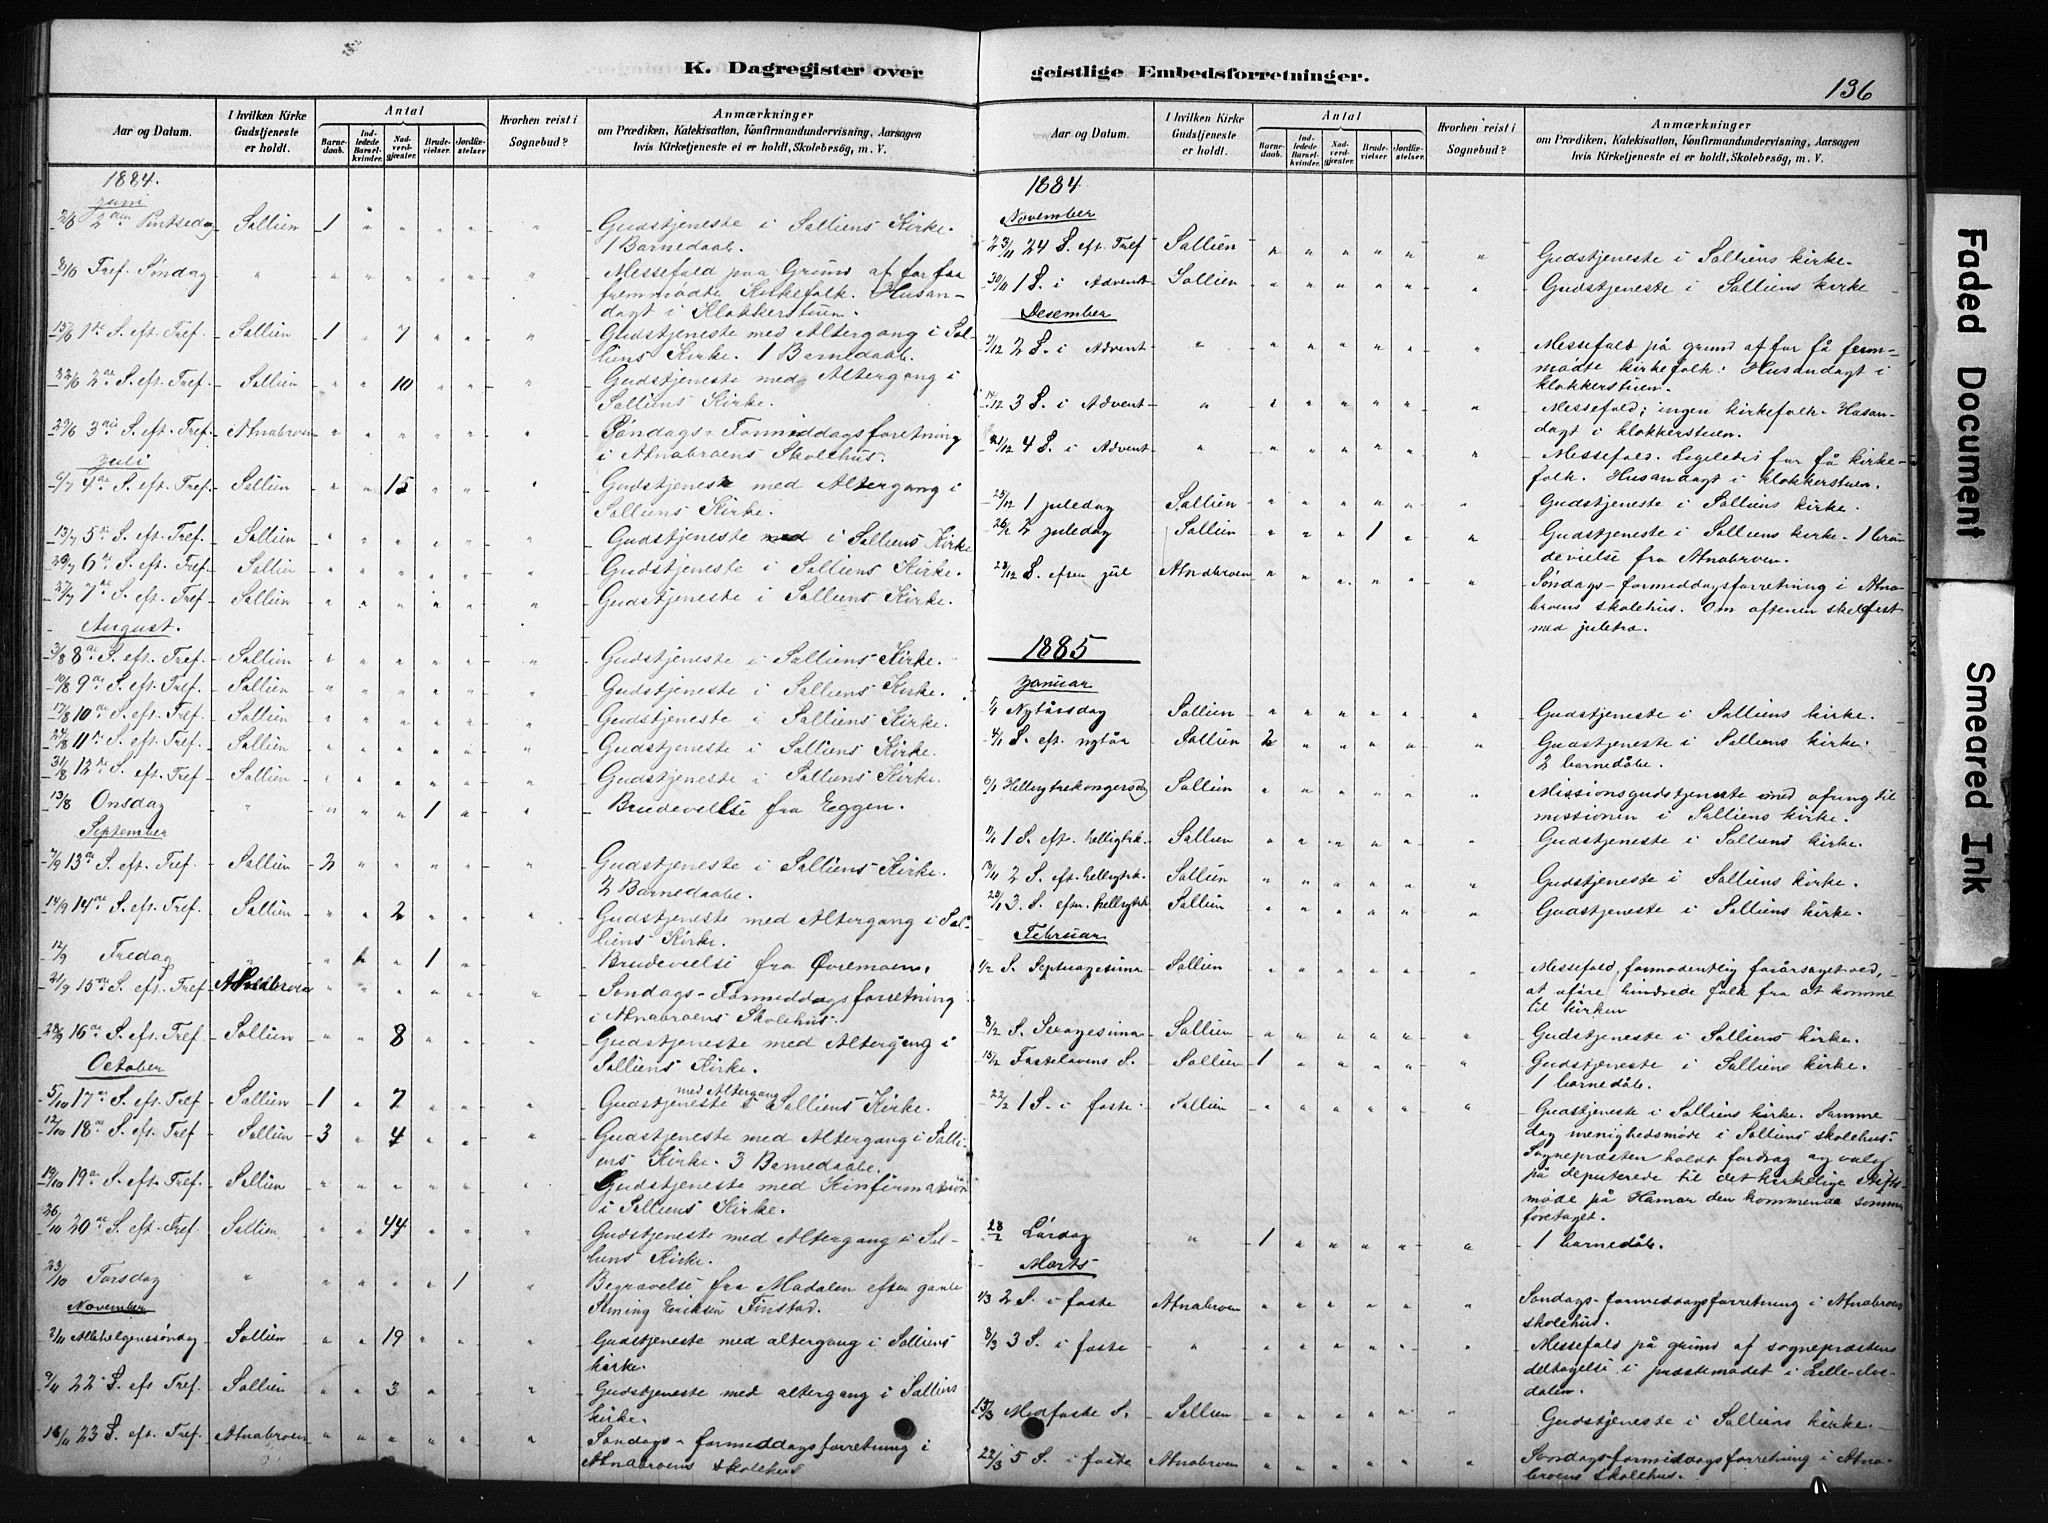 K. Dagregister over geistlige Embedsforretninger.
136
Aar og Datum. I hvilken Kirke Gudstjeneste er holdt. Antal Barnedaab. Indledede Barselkvinder. Nadverdgjester. Brudevielser. Jordfæstelser. Hvorhen reist i Sognebud? Anmærkninger om Prædiken, Katekisation, Konfirmandundervisning, Aarsagen hvis Kirketjeneste ei er holdt, Skolebesög, m. V.
1884.
Juni
2/6 2den Pintsedag Sollien 1 Gudstjeneste i Solliens Kirke.
1 Barnedaab.
8/6 Tref. Søndag " Messefald paa Grund af for faa
fremmødte Kirkefolk. Husan-
dagt i Klokkerstuen.
15/6 1ste S. eft. Tref. Sollien 1 " 7 Gudstjeneste med Altergang i Sol-
liens Kirke. 1 Barnedaab.
22/6 2den S. eft. Tref. Sollien " " 10 Gudstjeneste med Altergang i
Solliens Kirke.
29/6 3die S. eft. Tref. Atnabroen Søndags-Formiddagsforretning
i Atnabroens Skolehus.
Juli
6/7 4de S. eft. Tref. Sollien " " 15 Gudstjeneste med Altergang i
Solliens Kirke.
13/7 5te S. eft. Tref. Sollien Gudstjeneste med i Solliens Kirke
20/7 6te S. eft. Tref. Sollien Gudstjeneste i Solliens Kirke.
27/7 7de S. eft. Tref. Sollien Gudstjeneste i Solliens Kirke.
August.
3/8 8de S. eft. Tref. Sollien Gudstjeneste i Solliens Kirke.
10/8 9de S. eft. Tref. Sollien Gudstjeneste i Solliens Kirke.
17/8 10de S. eft. Tref. Sollien Gudstjeneste i Solliens Kirke.
24/8 11te S. eft. Tref. Sollien Gudstjeneste i Solliens Kirke.
31/8 12te S. eft. Tref. Sollien Gudstjeneste i Solliens Kirke.
13/8 Onsdag " " " " 1 Brudevielse fra Eggen.
September
7/9 13de S. eft. Tref. Sollien 2 Gudstjeneste i Solliens Kirke.
2 Barnedaabe.
14/9 14de S. eft. Tref. Sollien " " 2 Gudstjeneste med Altergang i Sol-
liens Kirke.
12/9 Fredag " " " " 1 Brudevielse fra Øvremoen.
21/9 15de S. eft. Tref. Atnabroen Søndags-Formiddagsforretning
i Atnabroens Skolehus.
28/9 16de S. eft. Tref. Sollien " " 8 Gudstjeneste med Altergang i
Solliens Kirke.
October
5/10 17de S. eft. Tref. Sollien 1 " 7 Gudstjeneste med Altergang i Solliens Kirke.
12/10 18de S. eft. Tref. Sollien 3 " 4 Gudstjeneste med Altergang i Solli-
ens Kirke. 3 Barnedaabe.
19/10 19de S. eft. Tref. Sollien Gudstjeneste med Konfirmation
i Solliens Kirke.
26/10 20de S. eft. Tref. Sollien " " 44 Gudstjeneste med Altergang i Sol-
liens Kirke.
23/10 Torsdag " " " " " 1 Begravelse fra Madalen efter gamle
Eriksen Finstad.
November
2/11 Allehelgenssøndag Sollien " " 19 Gudstjeneste med altergang i Solliens
kirke.
9/11 22. S. eft. Tref. Sollien " " 3 Gudstjeneste med altergang i Solliens
kirke.
16/11 23 S. eft. Tref. Atnabroen Søndags-formiddagsforretning i
Atnabroens skolehus
Aar og Datum. I hvilken Kirke Gudstjeneste er holdt. Antal Barnedaab. Indledede Barselkvinder. Nadverdgjester. Brudevielser. Jordfæstelser. Hvorhen reist i Sognebud? Anmærkninger om Prædiken, Katekisation, Konfirmandundervisning, Aarsagen hvis Kirketjeneste ei er holdt, Skolebesög, m. V.
1884
November
23/11 24 S. eft. Tref Sollien Gudstjeneste i Solliens kirke.
30/11 1 S. i Advent Sollien Gudstjeneste i Solliens kirke
Desember
7/12 2 S. i Advent " Messefald på grund af for få frem-
mødte kirkefolk. Husandagt i
klokkerstuen.
14/12 3 S. i Advent " Messefald; ingen kirkefolk. Husan-
dagt i klokkerstuen.
21/12 4 S. i Advent " Messefald. Ligeledes for få kirke-
folk. Husandagt i klokkerstuen.
25/12 1 juledag Sollien Gudstjeneste i Solliens kirke.
26/12 2 juledag Sollien " " " 1 Gudstjeneste i Solliens kirke. 1 bru-
devielse fra Atnabroen.
28/12 S. efter jul Atnabroen Søndags-formiddagsforretning i Atna-
broens skolehus. Om aftenen skolefest
med juletræ.
1885
Januar
1/1 Nytårsdag Sollien Gudstjeneste i Solliens kirke.
4/1 S. eft. nytår Sollien 2 Gudstjeneste i Solliens kirke.
2 barnedåbe.
6/1 Helligtrekongersdag Sollien Missionsgudstjeneste med ofring til
missionen i Solliens kirke.
11/1 1 S. eft. helligtrk. Sollien Gudstjeneste i Solliens kirke.
18/1 2 S. eft. helligtrk. Sollien Gudstjeneste i Solliens kirke.
25/1 3. S. efter helligtrk Sollien Gudstjeneste i Solliens kirke.
Februar
1/2 S. Septuagesima Sollien Messefald, formodentlig forårsaget ved,
at uføre hindrede folk fra at komme
til kirken
8/2 S. Sexagesima Sollien Gudstjeneste i Solliens kirke.
15/2 Fastelavens S. Sollien 1 Gudstjeneste i Solliens kirke.
1 barnedåb.
22/2 1 S. i faste Sollien Gudstjeneste i Solliens kirke. Samme
dag menighedsmøde i Solliens skolehus.
Sognepræsten holdt foredrag og valg
på deputerede til det kirkelige Stifts-
møde på Hamar den kommende sommer
foretaget.
28/2 Lørdag " 1 1 barnedåb.
Marts
1/3 2 S. i faste Atnabroen Søndags-formiddagsforretning i Atnabroens
skolehus.
8/3 3 S. i faste " Messefald på grund af sognepræstens
deltagelse i præstemødet i Lille-Elv-
dalen.
15/3 Midfaste S. Sollien Gudstjeneste i Solliens kirke.
22/3 5 S. i faste Atnabroen Søndagsformiddagsforretning i Atna-
broens skolehus.
Faded Document
Smeared Ink